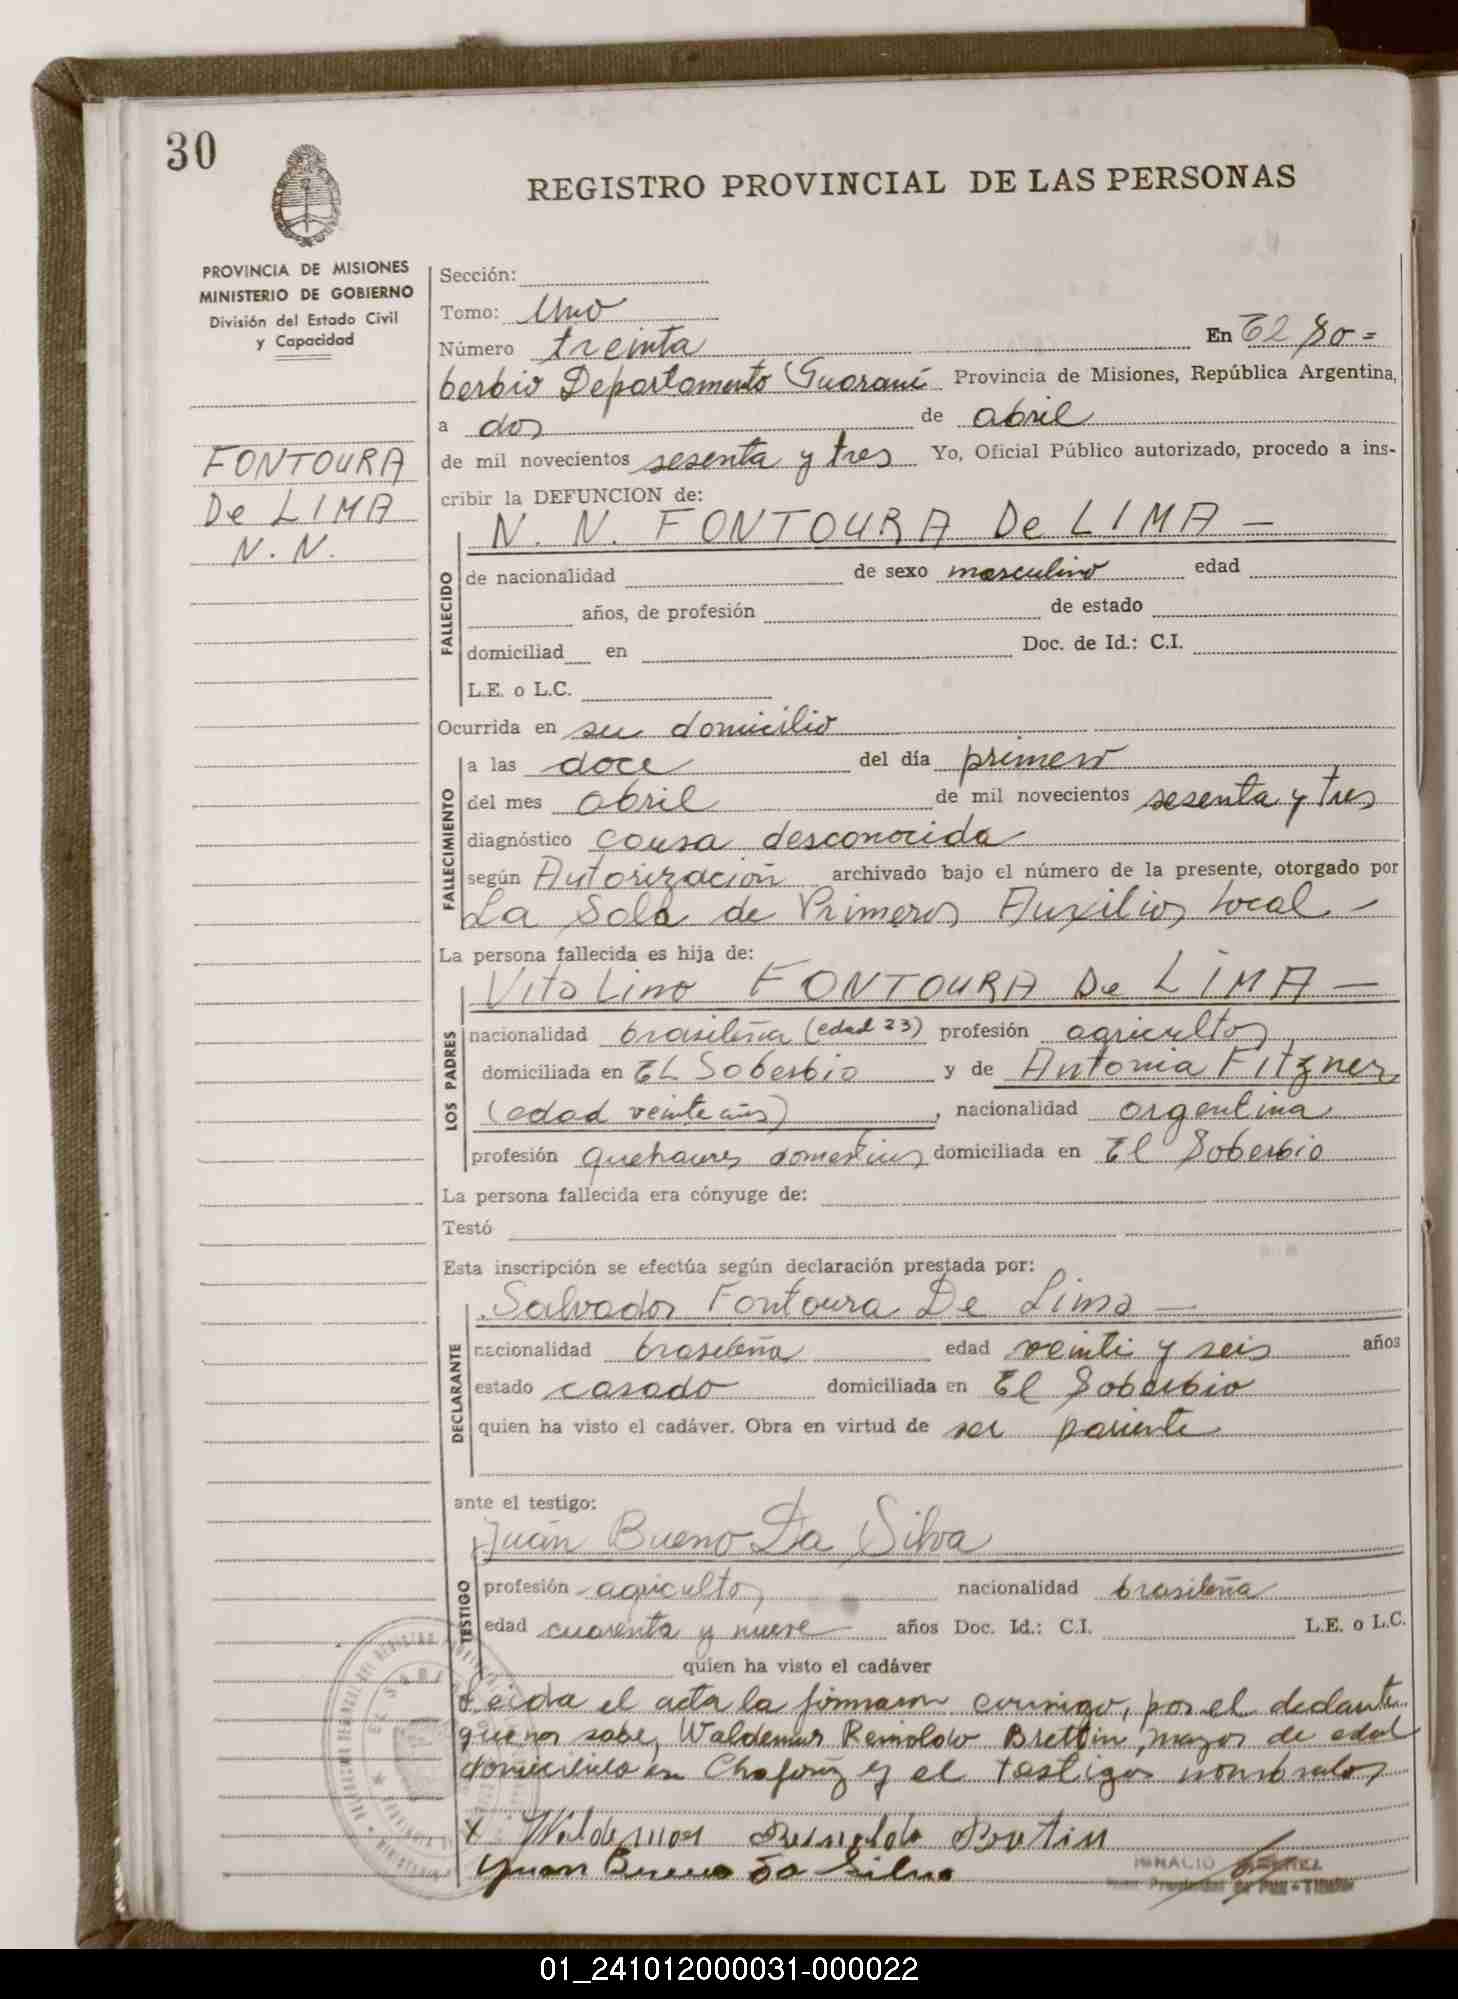 30
REGISTRO PROVINCIAL DE LAS PERSONAS
PROVINCIA DE MISIONES
MINISTERIO DE GOBIERNO
División del Estado Civil
y Capacidad
FONTOURA
De LIMA
N. N.
Sección:
Tomo: Uno
Número treinta En El So=
berbio Departamento Guaraní Provincia de Misiones, República Argentina,
a dos de abril
de mil novecientos sesenta y tres Yo, Oficial Público autorizado, procedo a ins-
cribir la DEFUNCION de:
N. N. FONTOURA De LIMA —
FALLECIDO
de nacionalidad de sexo masculino edad
años, de profesión de estado
domiciliad en Doc. de Id.: C.I.
L.E. o L.C.
Ocurrida en su domicilio
FALLECIMIENTO
a las doce del día primero
del mes abril de mil novecientos sesenta y tres
diagnóstico causa desconocida
según Autorización archivado bajo el número de la presente, otorgado por
La Sala de Primeros Auxilios local. -
La persona fallecida es hija de:
LOS PADRES
Vita Lino FONTOURA De LIMA —
nacionalidad brasileña (edad 23) profesión agricultor
domiciliada en El Soberbio y de Antonia Fitzner
(edad veinte años), nacionalidad argentina
profesión quehaceres domésticos domiciliada en El Soberbio
La persona fallecida era cónyuge de:
Testó
Esta inscripción se efectúa según declaración prestada por:
DECLARANTE
Salvador Fontoura De Lima —
nacionalidad brasileña edad veinti y seis años
estado casado domiciliada en El Soberbio
quien ha visto el cadáver. Obra en virtud de ser pariente
ante el testigo:
TESTIGO
Juán Bueno Da Silva
profesión agricultor nacionalidad brasileña
edad cuarenta y nueve años Doc. Id.: C.I. L.E. o L.C.
quien ha visto el cadáver
Leida el acta la firmaron conmigo, por el declarante
que no sabe, Waldemar Reinoldo Brettin, mayor de edad
domiciliado en y el testigo nombrado,
X Waldemar Reinoldo Brettin
Juan Bueno Da Silva
IGNACIO
01_241012000031-000022